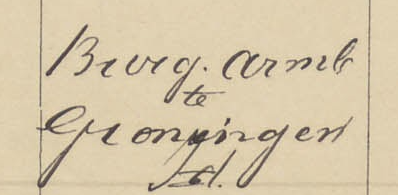 Burg. Armb
te
Groningen
Id.